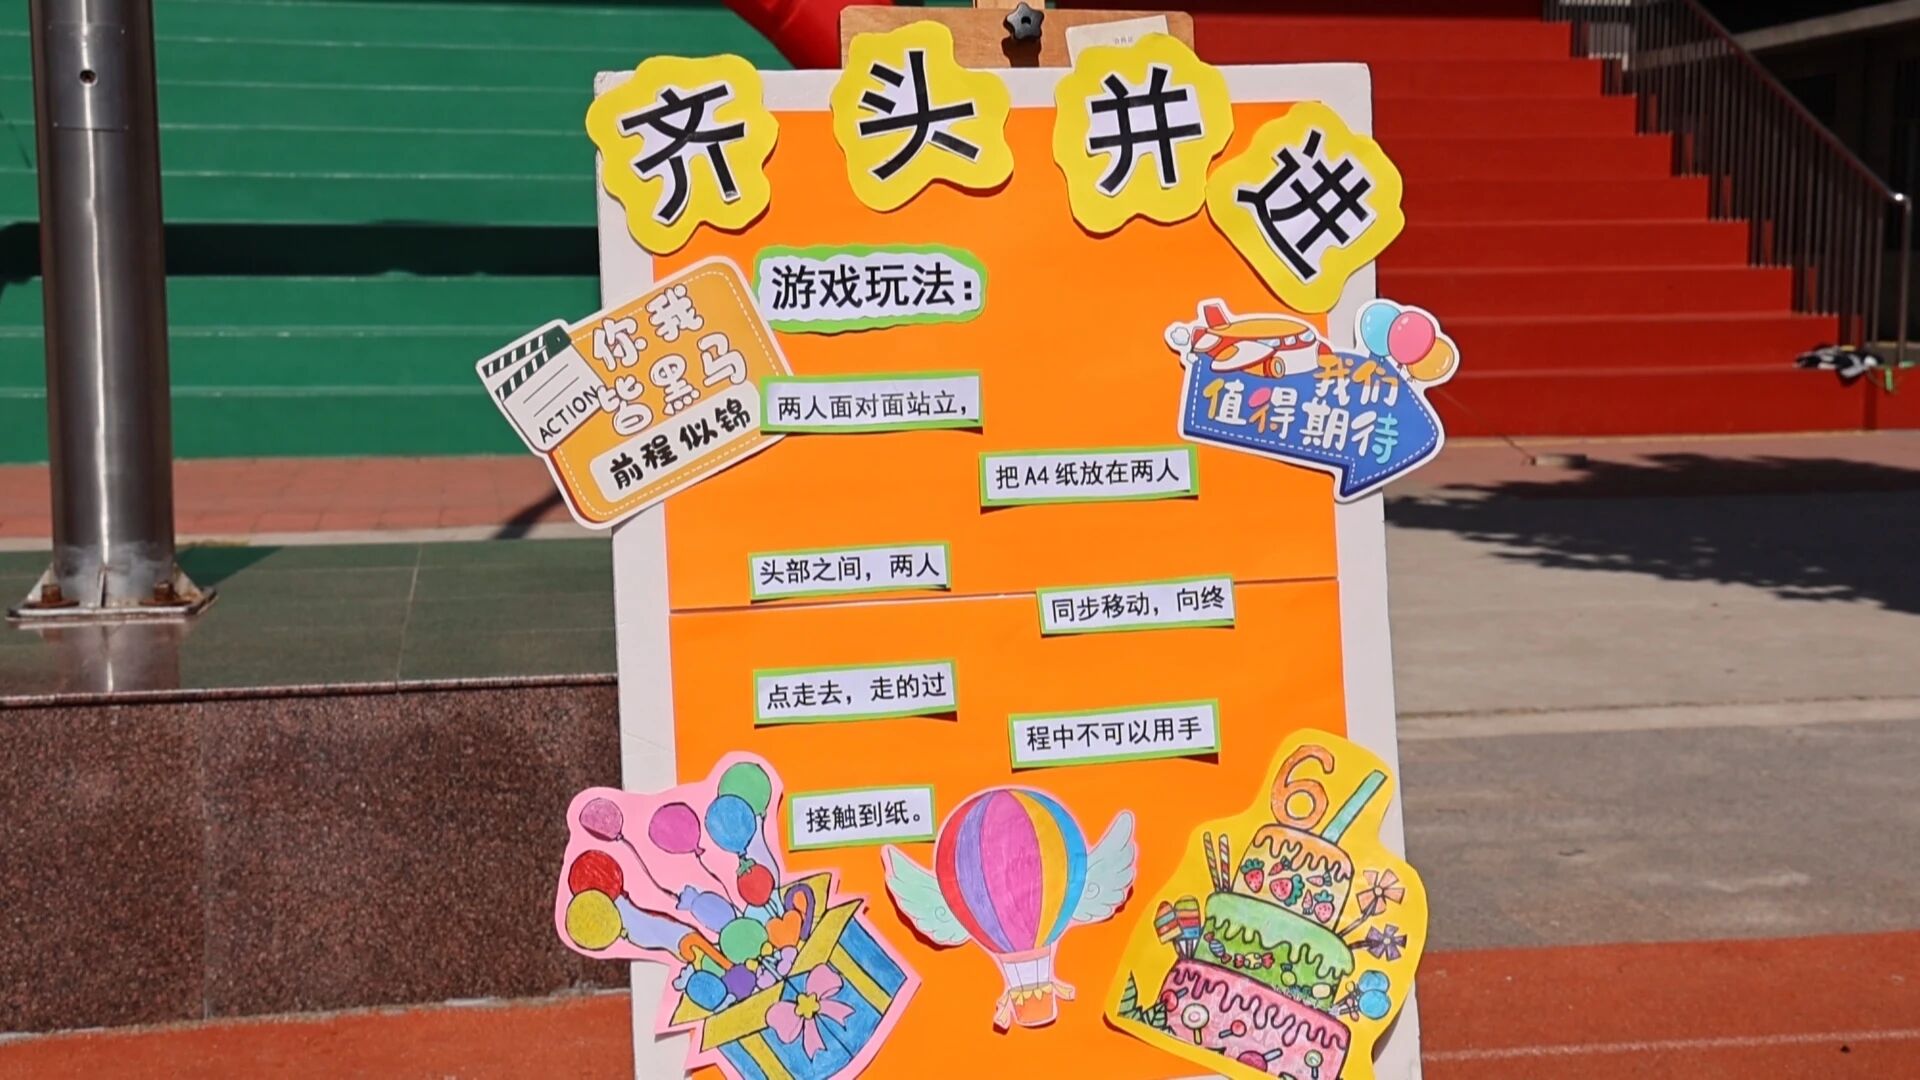 齐头并进
游戏玩法：
你我
皆黑马
前程似锦
ACTION
我们
值得期待
两人面对面站立，
把A4纸放在两人
头部之间，两人
同步移动，向终
点走去，走的过
程中不可以用手
接触到纸。
6